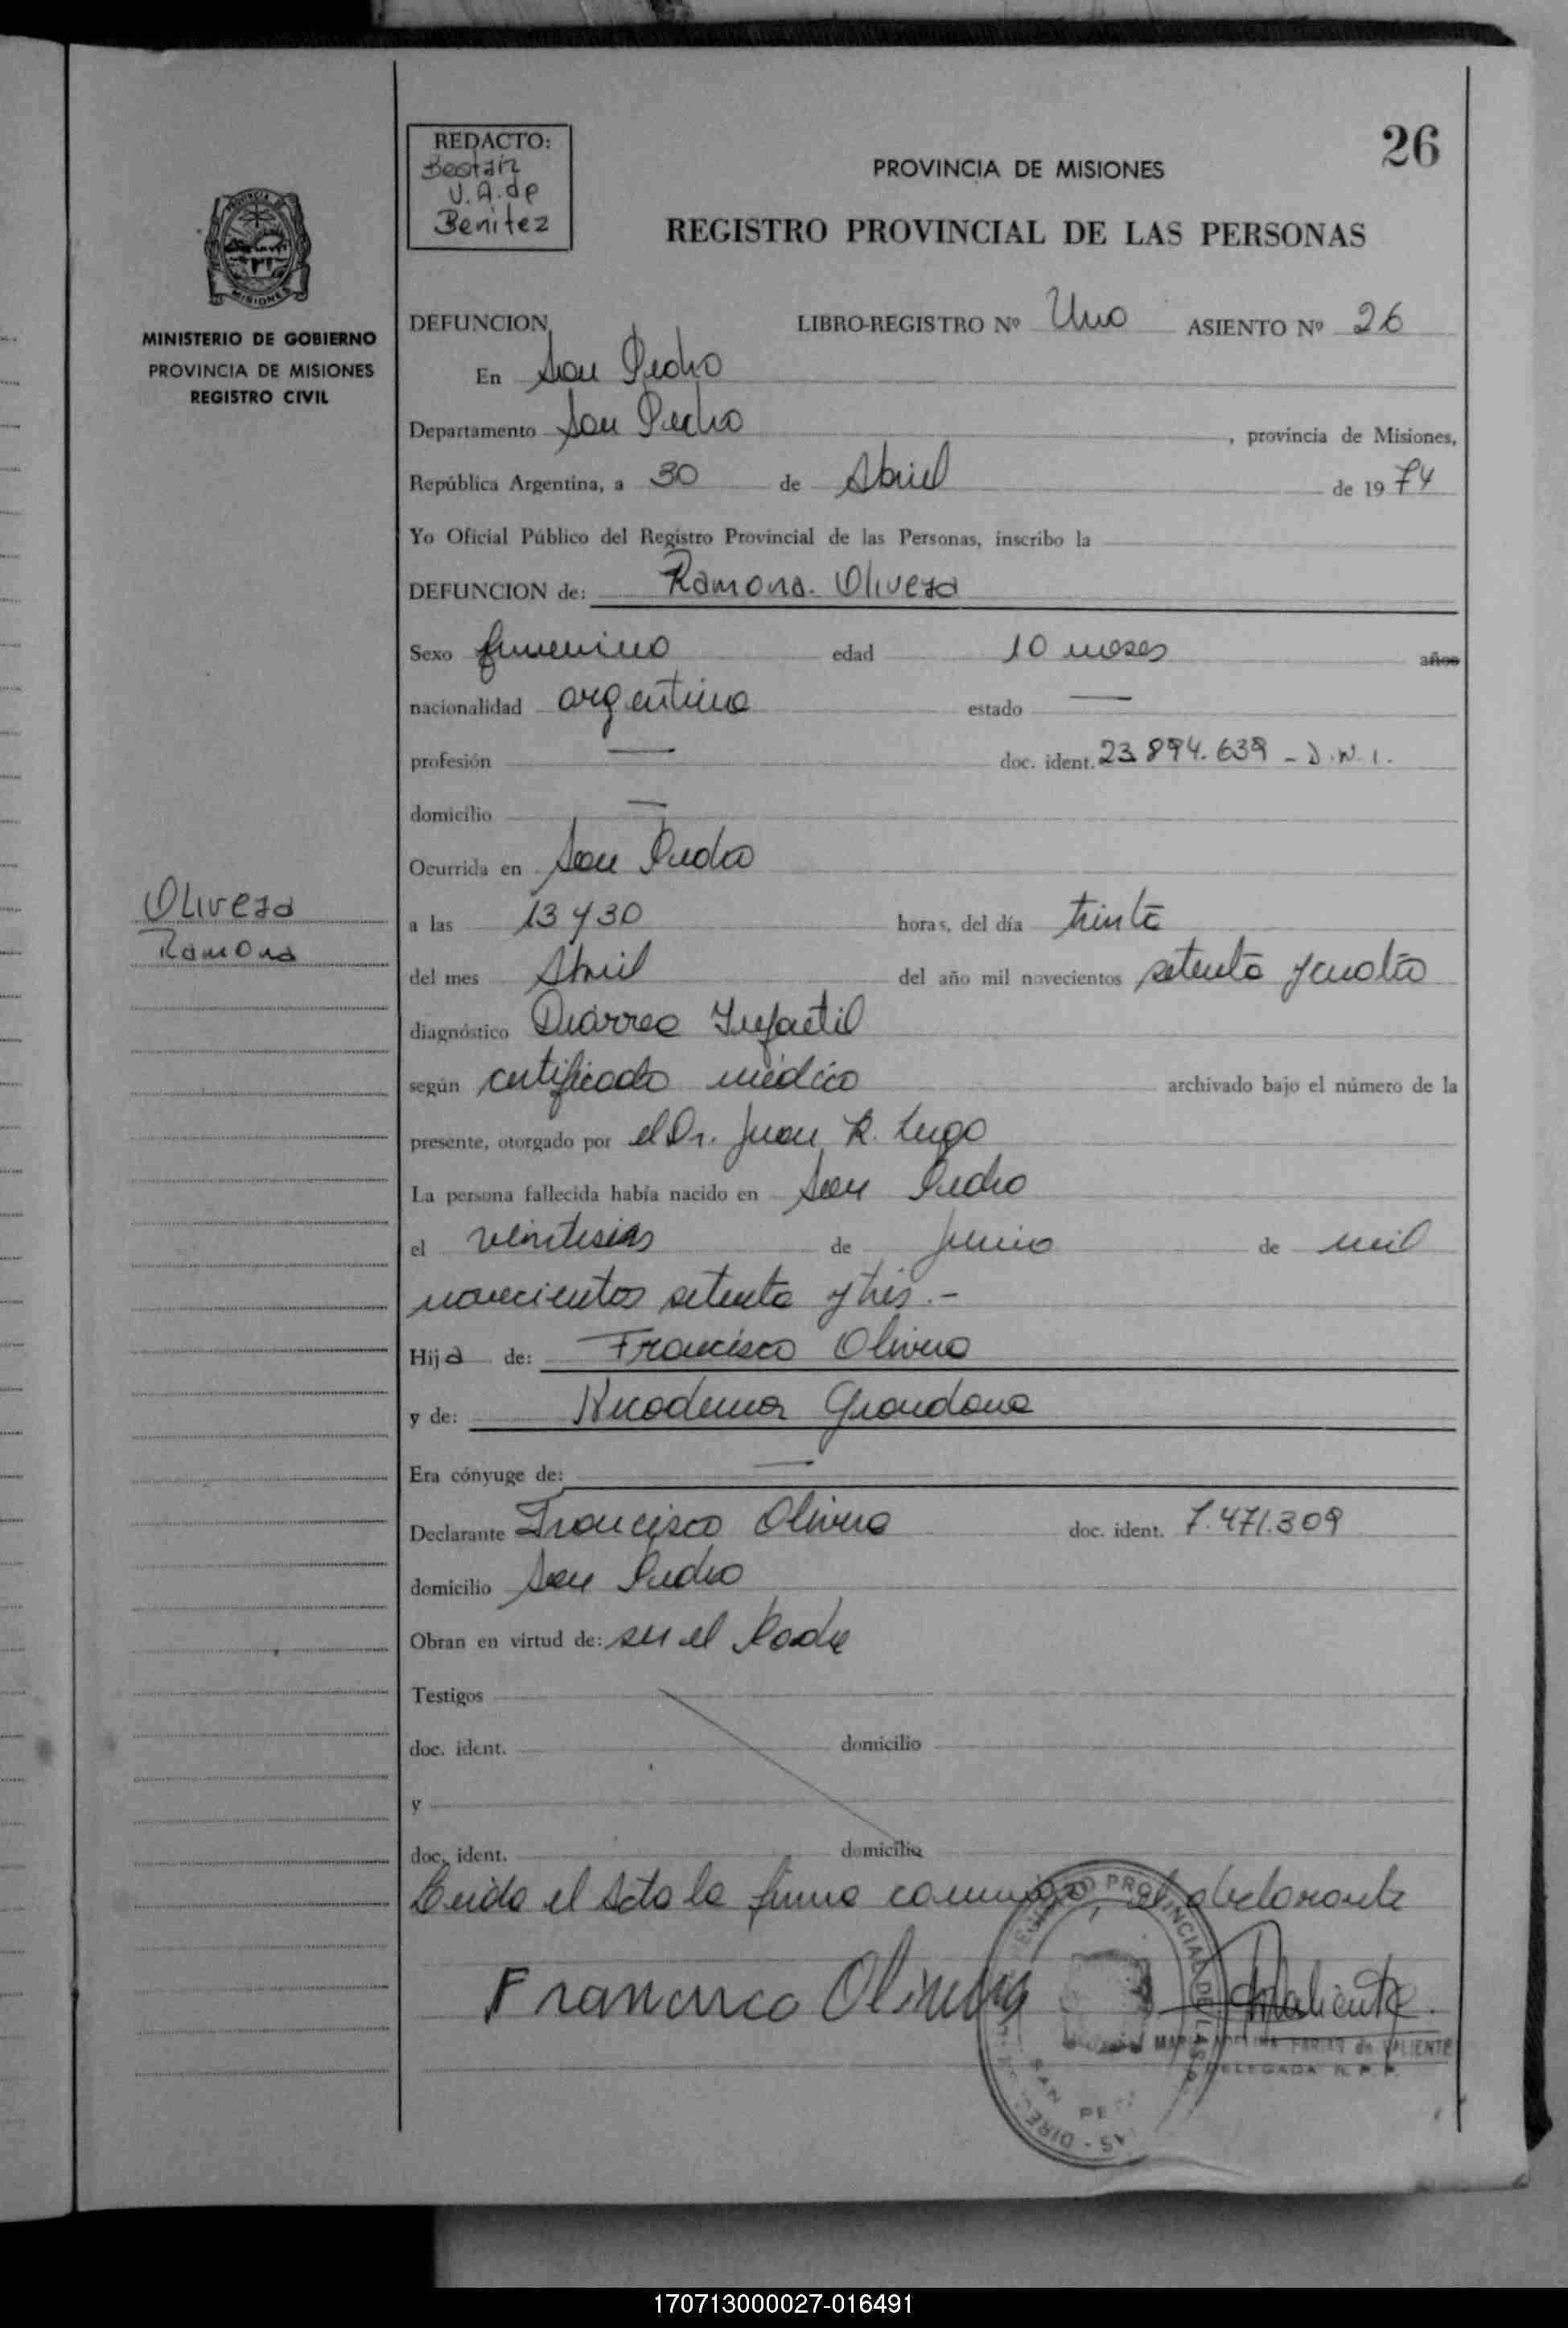 26
REDACTO:
Beatriz
V. A. de
Benitez
PROVINCIA DE MISIONES
REGISTRO PROVINCIAL DE LAS PERSONAS
MISIONES
MINISTERIO DE GOBIERNO
PROVINCIA DE MISIONES
REGISTRO CIVIL
DEFUNCION LIBRO-REGISTRO Nº Uno ASIENTO Nº 26
En San Pedro
Departamento San Pedro, provincia de Misiones,
República Argentina, a 30 de Abril de 1974
Yo Oficial Público del Registro Provincial de las Personas, inscribo la
DEFUNCION de: Ramona. Olivera
Sexo femenino edad 10 meses años
nacionalidad argentina estado —
profesión — doc. ident. 23.894.639 - D.N.I.
domicilio —
Ocurrida en San Pedro
Olivera
Ramona
a las 13 y 30 horas, del día treinta
del mes Abril del año mil novecientos setenta y cuatro
diagnóstico Diarrea Infatil
según certificado médico archivado bajo el número de la
presente, otorgado por el Dr. Juan R. Lugo
La persona fallecida había nacido en San Pedro
el veintiseis de junio de mil
novecientos setenta y tres.-
Hija de: Francisco Olivera
y de: Nicodema Grandona
Era cónyuge de: —
Declarante Francisco Olivera doc. ident. 7.471.309
domicilio San Pedro
Obran en virtud de: ser el Padre
Testigos
doc. ident. domicilio
y
doc. ident. domicilio
Leida el Acta la firma conmigo, el declarante
Francisco Olivera
FARIAS de VALIENTE
DELEGADA R. P. P.
170713000027-016491